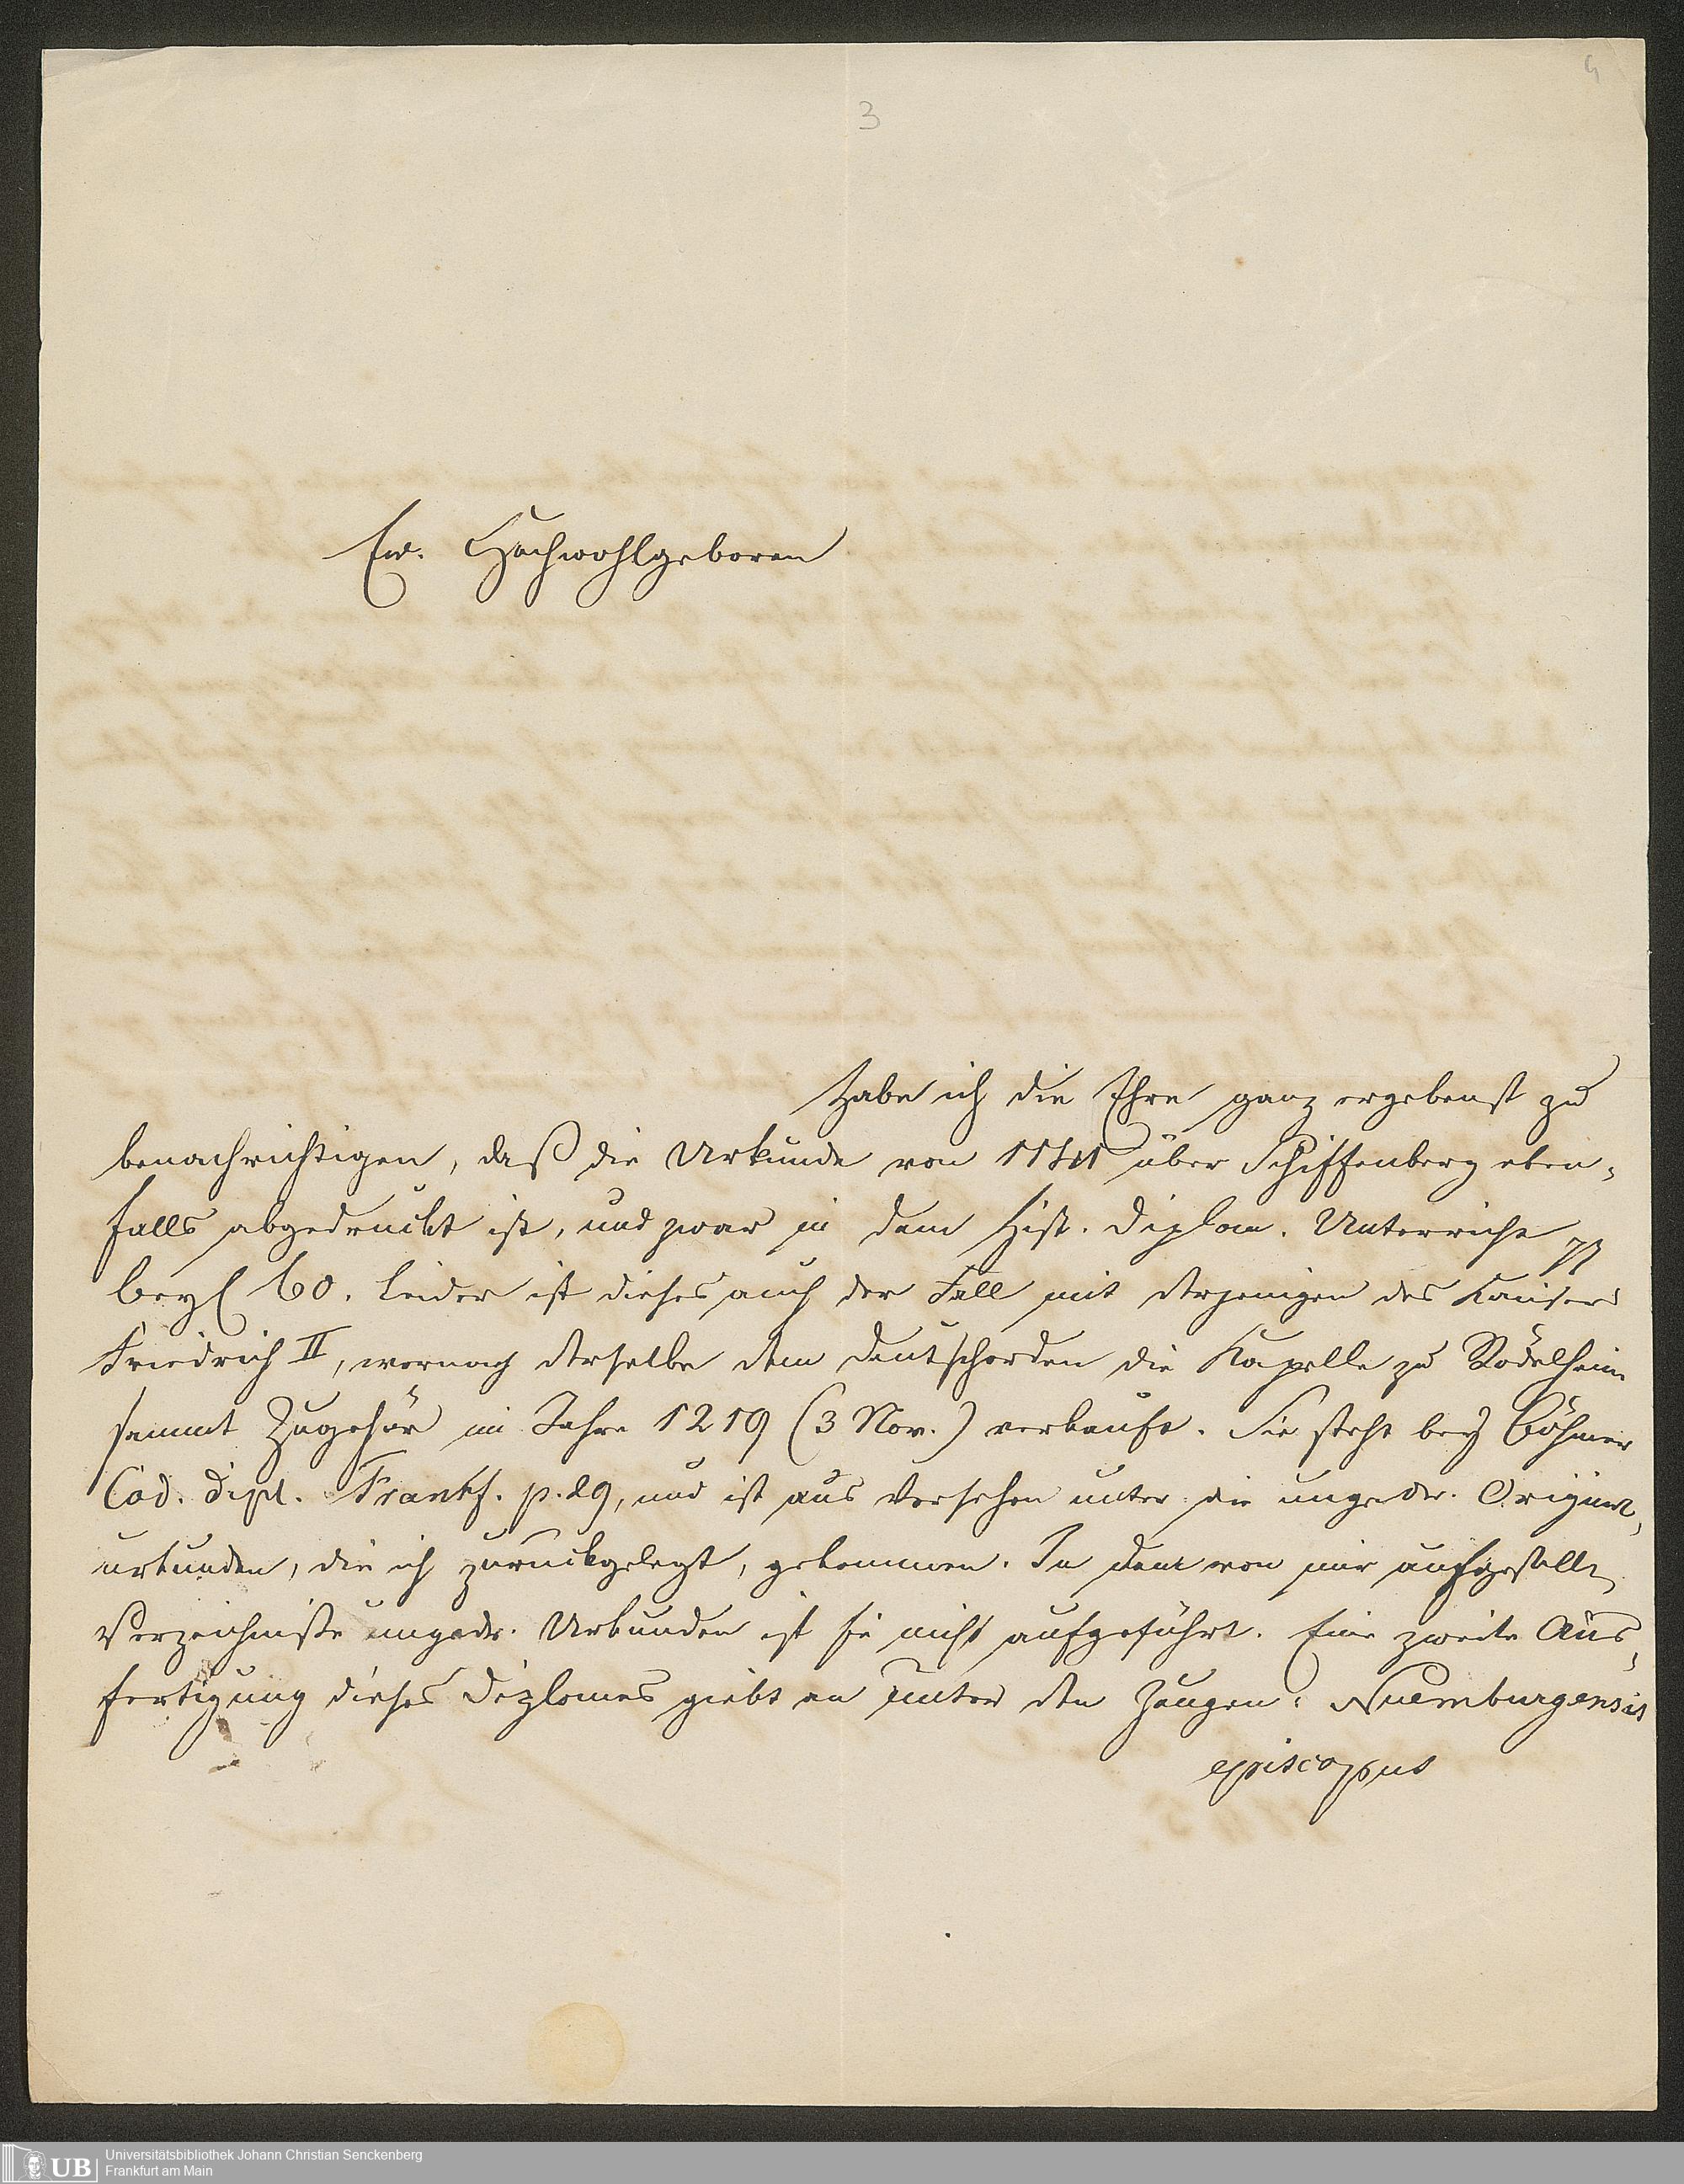 4
3
Ew. Hochwohlgeboren
habe ich die Ehre ganz ergebenst zu
benachrichtigen, daß die Urkunde von 1141 über Schiffenberg eben-
falls abgedruckt ist, und zwar in dem Hist. Diplom. Unterricht pp
Beyl 60. Leider ist dieses auch der Fall mit derjenigen des Kaisers
Friedrich II, wornach derselbe dem Deutschorden die Kapelle zu Rödelheim
sammt Zugehör im Jahre 1219 (3 Nov.) verkauft. Sie steht bey Böhmer
Cod. dipl. Frankf. p. 29, und ist aus Versehen unter die ungedr. Original-
urkunden, die ich zurückgelegt, gekommen. In dem von mir aufgestellt
Verzeichniße ungedr. Urkunden ist sie nicht aufgeführt. Eine zweite Aus-
fertigung dieses Diplomes giebt an unter den Zeugen: Nuemburgensis
episcopus
UB Universitätsbibliothek Johann Christian Senckenberg
Frankfurt am Main